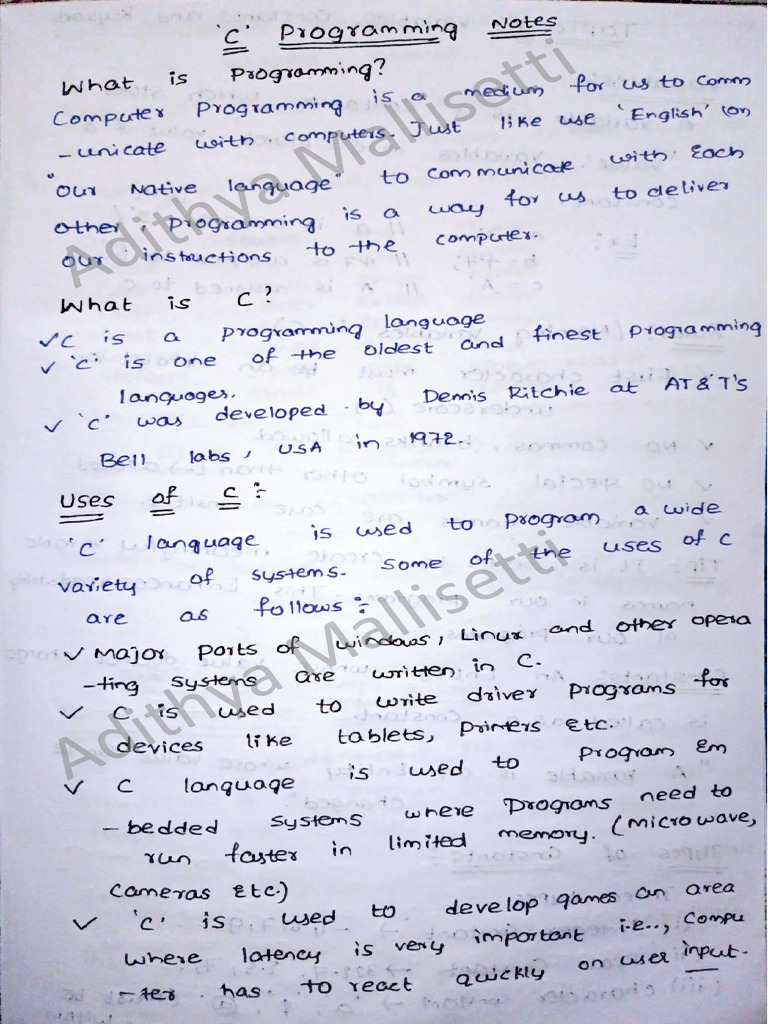 'C' Programming Notes
What is Programming?
Computer Programming is a medium for us to comm
-unicate with computers. Just like use 'English' (or)
"our Native language" to communicate with Each
other, programming is a way for us to deliver
our instructions to the computer.
What is C?
✓ C is a programming language
✓ 'C' is one of the oldest and finest programming
languages.
✓ 'C' was developed by Dennis Ritchie at AT&T's
Bell labs, USA in 1972.
Uses of C :-
'C' language is used to program a wide
variety of systems. Some of the uses of C
are as follows :-
✓ Major ports of windows, Linux and other opera
-ting systems are written in C.
✓ C is used to write driver programs for
devices like tablets, printers Etc.
✓ C language is used to program Em
-bedded systems where programs need to
run faster in limited memory. (Microwave,
Cameras Etc.)
✓ 'C' is used to develop games an area
where latency is very important i.e.., Compu
-ter has to react quickly on user input.
Adithya Mallisetti
Adithya Mallisetti